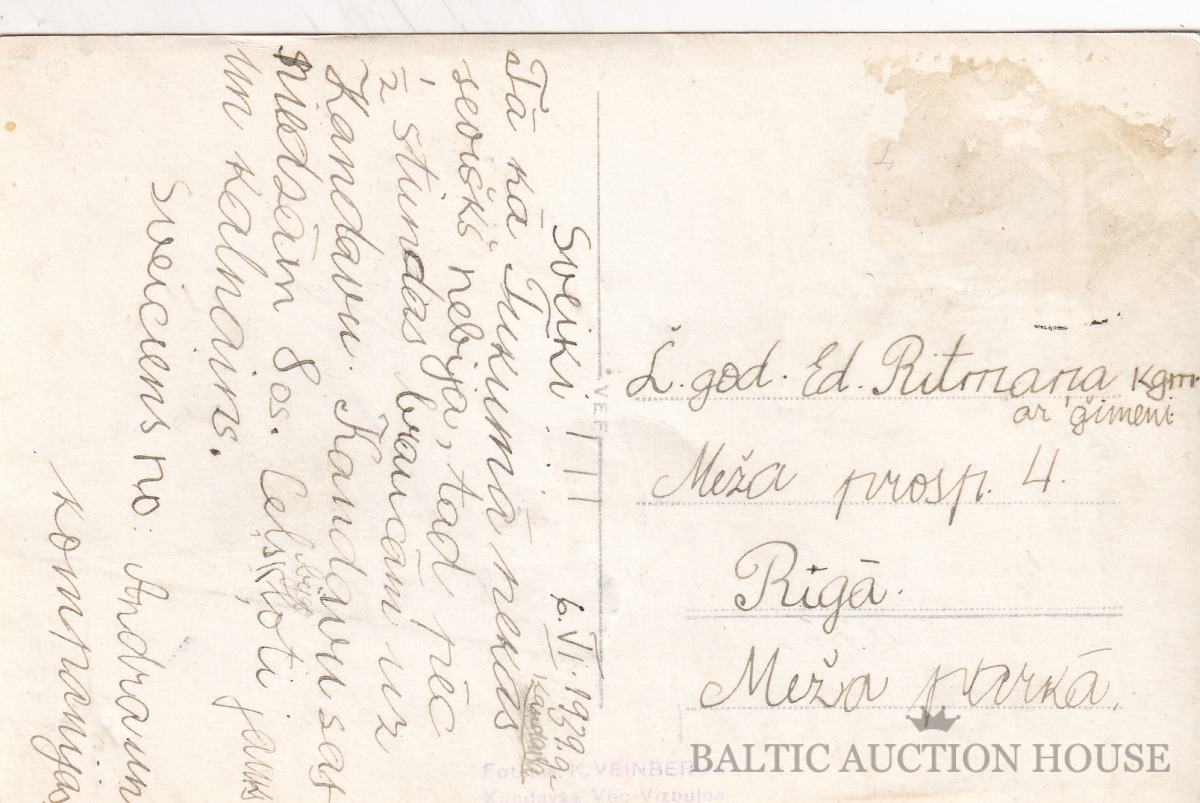 Sveiki!
6. VI. 1939. g.
Kandavā
Tā kā Tukumā nekas
sevišķs nebija, tad pēc
½ stundas braucām uz
Kandavu. Kandavu sas
niedzām 8os. Ceļš bija ļoti jauks
un kalnains.
Sveiciens no: Andra un
kompānijas
VEF
L. god. Ed. Ritmaņa kgm
ar ģimeni
Meža prosp. 4.
Rīgā.
Meža parkā.
K. VEINBERGS
Kandavas Vec-Vizbuļos
BALTIC AUCTION HOUSE